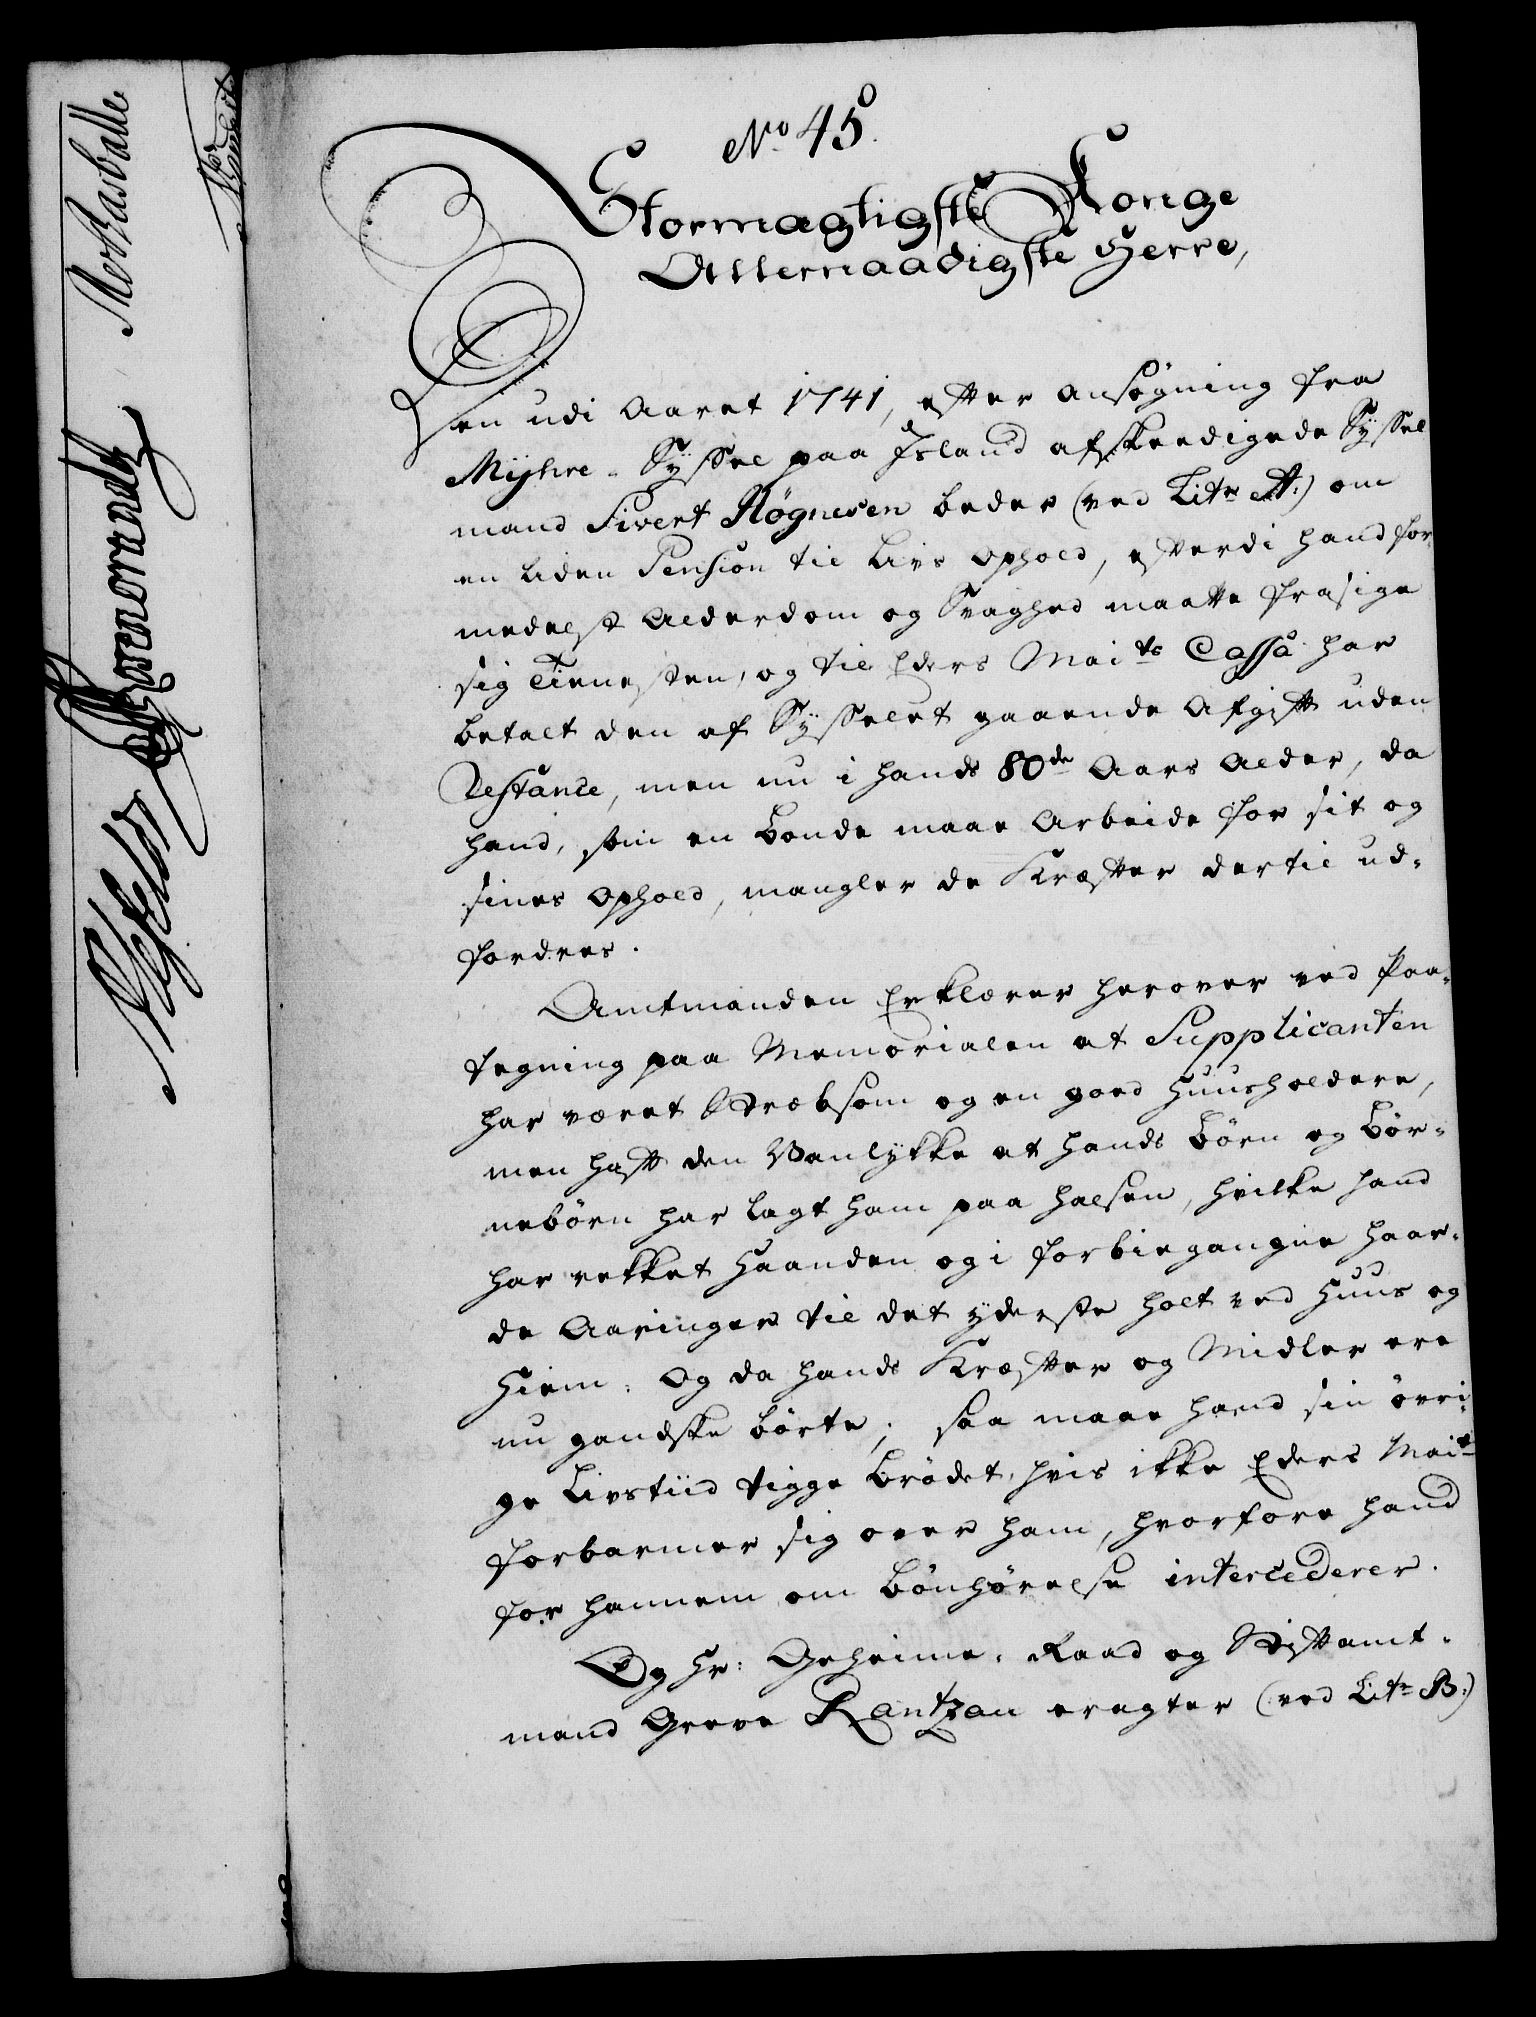 No 45.
Stormægtigste Konge
Allernaadigste Herre,
Den udi Aaret 1741, efter ansøgning fra
Myhre-Syssel paa Island afskeedigede Syssel
mand Sivert Røgnesen beder (ved Litr. A:) om
en liden Pension til Livs Ophold, efterdi hand for
medelst Alderdom og Svaghed maatte frasige
sig Tienesten, og til Eders Maits Cassa har
betalt den af Sysselet gaaende Afgift uden
Restance, men nu i hands 80de Aars Alder, da
hand, som en Bonde maae Arbeide for sit og
sines Ophold, mangler de Kræfter dertil ud-
fordres.
Amtmanden Erklærer herover ved Paa-
tegning paa Memorialen at Supplicanten
har været Stræbsom og en goed Huusholdere,
men haft den Vanlykke at hands Börn og Bör-
nebörn har lagt ham paa halsen, hvilke hand
har rekket Haanden og i forbiegangne haar-
de Aaringer til det yderste holt ved Huus og
Hiem; Og da hands Kræfter og Midler ere
nu gandske börte; saa maae hand sin övri-
ge Livstiid tigge Brödet, hvis ikke Eders Mait
forbarmer sig over ham, hvorfore hand
for hannem om Bönhörelse intercederer.
Og Hr: Geheime-Raad og Stiftamt-
mand Greve Rantzau eragter (ved Litr. B:)